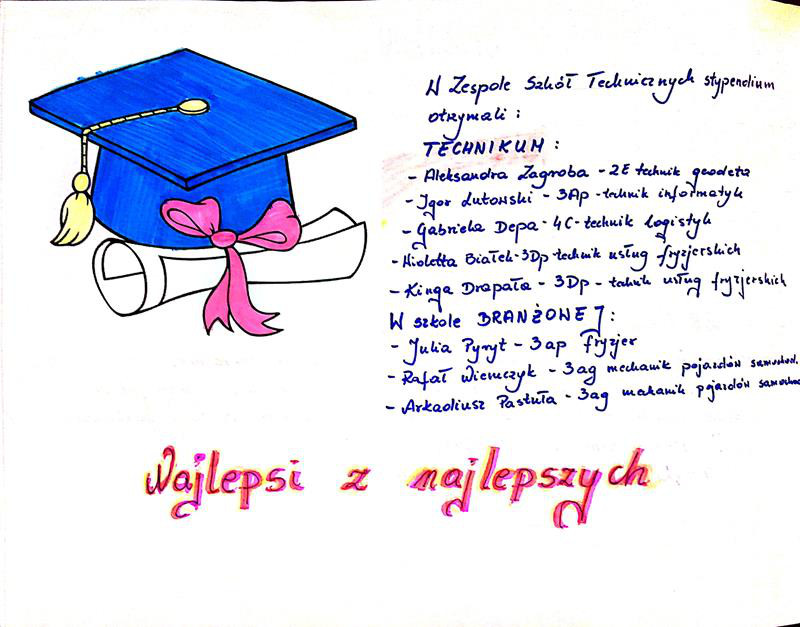 W Zespole Szkół Technicznych stypendium
otrzymali :
TECHNIKUM :
- Aleksandra Zagroba - 2E technik geodeta
- Igor Lutowski - 3Ap - technik informatyk
- Gabriela Depa - 4C - technik logistyk
- Wioletta Białek - 3Dp - technik usług fryzjerskich
- Kinga Drapała - 3Dp - technik usług fryzjerskich
W szkole BRANŻOWEJ :
- Julia Pyryt - 3ap fryzjer
- Rafał Wiemczyk - 3ag mechanik pojazdów samochod.
- Arkadiusz Pastuła - 3ag mechanik pojazdów samochod
Najlepsi z najlepszych